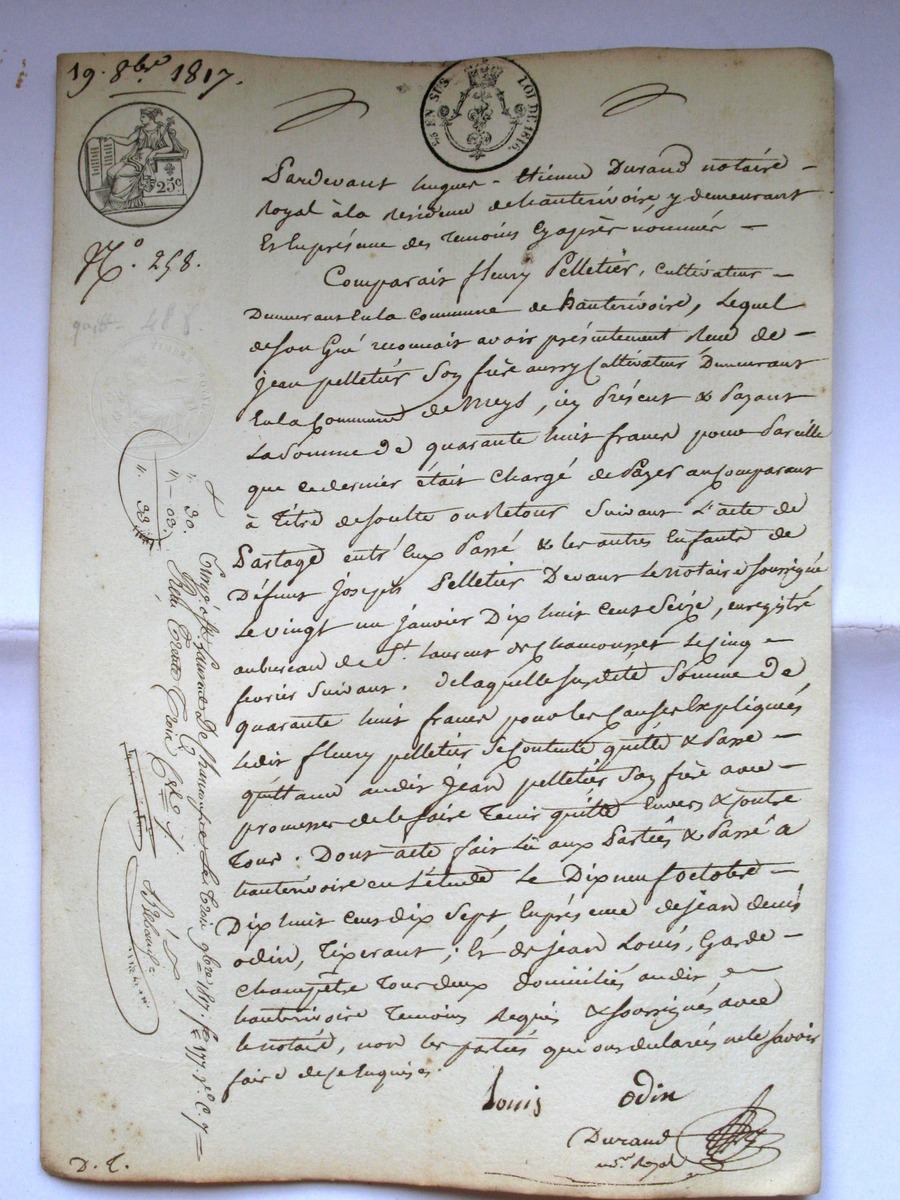 19. 8bre 1817.
25 EN SUS LOI DE 1816.
25c
No. 258.
quitt. 488.
Pardevant hugues - Etienne Durand notaire -
Royal à la Residence de hauterivoire, y demeurant
Et En présence des Temoins Cy après nommés -
Comparait fleury Pelletier, Cultivateur -
Demeurant En la Commune de hauterivoire, Lequel
de son Gré reconnait avoir présentement Reçu de -
jean pelletier Son frère aussy Cultivateur Demeurant
En la Commune de Meys, icy Présent & Payant
La Somme de quarante huit francs pour Pareille
que ce dernier était Chargé de Payer au Comparant
à Titre de soulte ou Retour Suivant L'acte de
Partage entr'Eux Passé & les autres Enfants de
Défunt Joseph Pelletier Devant Le Notaire soussigné
Le vingt un janvier Dix huit Cent Seize, enregistré
au bureau de St. Laurent de Chamousset Le Cinq -
fevrier Suivant. de laquelle susdite Somme de
quarante huit francs pour les Causes Expliquées
Ledit fleury pelletier Se Contente quitte & Passe -
quittance audit jean pelletier Son frère avec -
promesse de le faire Tenir quitte Envers & Contre
Tous. Dont acte fait Lû aux Parties & Passé à
hauterivoire en L'étude Le Dix neuf octobre -
Dix huit Cens dix Sept, En présence de jean denis
odin, Tixerant; Et de jean Louis, Garde -
Champêtre Tous deux domiciliés audit -
hauterivoire Temoins Requis & soussignés avec
le notaire, non les parties qui ont declarées ne le Savoir
faire de ce Enquises.
Louis odin
Durand
nore. Royal
D. T.
30.
03.
33
Enregé. à St. Laurent De Chamousset Le Trois 9bre 1817. fo. 177. Vo. C. 7
Reçu Trente Trois